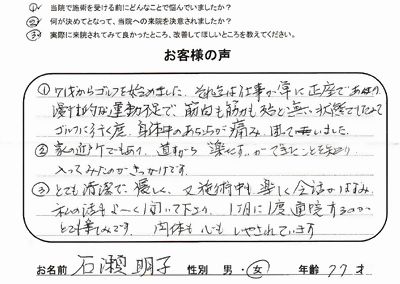 ① 当院で施術を受ける前にどんなことで悩んでいましたか？
② 何が決めてとなって、当院への来院を決意されましたか？
③ 実際に来院されてみて良かったところ、改善してほしいところを教えてください。
お客様の声
① 7才からゴルフを始めました。それまでは仕事が常に正座であり
慢性的な運動不足で、筋肉も筋力も殆ど無い状態でしたので
ゴルフに行く度、身体中のあちらが痛み、困っていました。
② 家の近所でもあり、道すがら 楽 ができたことを知り
入ってみたのがきっかけです。
③ とても清潔で、優しく、又施術中も楽しく会話がはずみ、
私の話をよ〜く聞いて下さり、1ヶ月に1度通院するのが
とても楽しみです。肉体も心もいやされています
お名前 石瀬明子 性別 男・女 年齢 77才